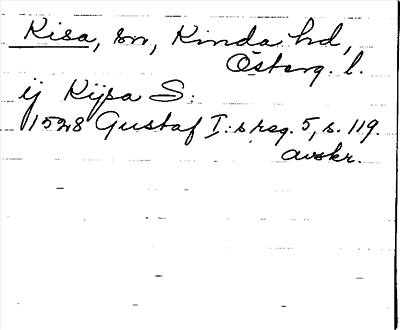 Kisa, sn, Kinda hd,
Österg. l.
ij Kijsa S:
1528 Gustaf I:s reg. 5, s. 119.
avskr.